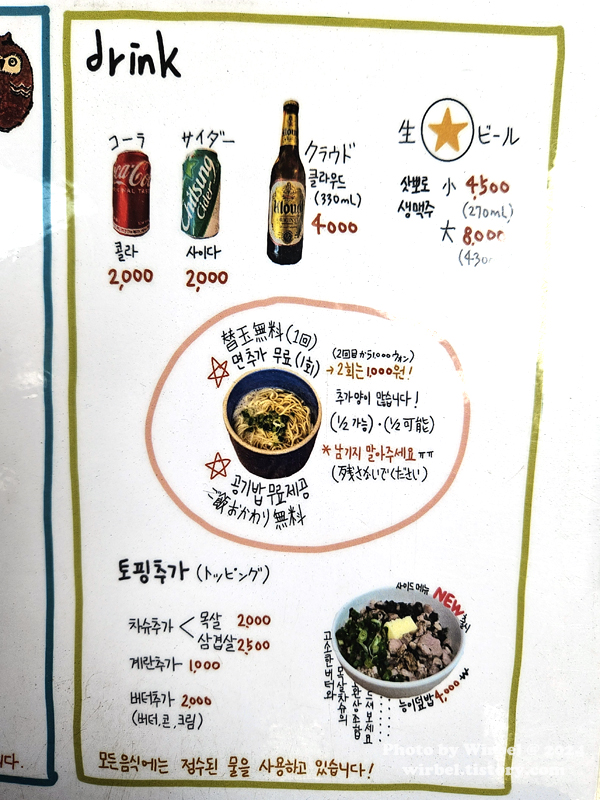 drink
コーラ
콜라
2,000
サイダー
사이다
2,000
クラウド
클라우드
(330mL)
4000
生 ビール
삿뽀로 小 4,500
생맥주 (270mL)
大 8,000
替玉無料(1回)
면추가 무료(1회)
(2回目から1,000ウォン)
→2회는 1,000원!
추가양이 많습니다!
(½ 가능)・(½ 可能)
*남기지 말아주세요 ㅠㅠ
공기밥 무료제공
ご飯おかわり無料
토핑추가 (トッピング)
차슈추가 < 목살 2,000
삼겹살 2,500
계란추가 1,000
버터추가 2,000
(버터, 콘, 크림)
사이드메뉴 NEW 출시
고소한 버터와
목살차슈의
환상조합
드셔보세요
능이덮밥 4,000₩
모든음식에는 정수된 물을 사용하고 있습니다!
니다.
Photo by Wirbel @ 2024
wirbel.tistory.com